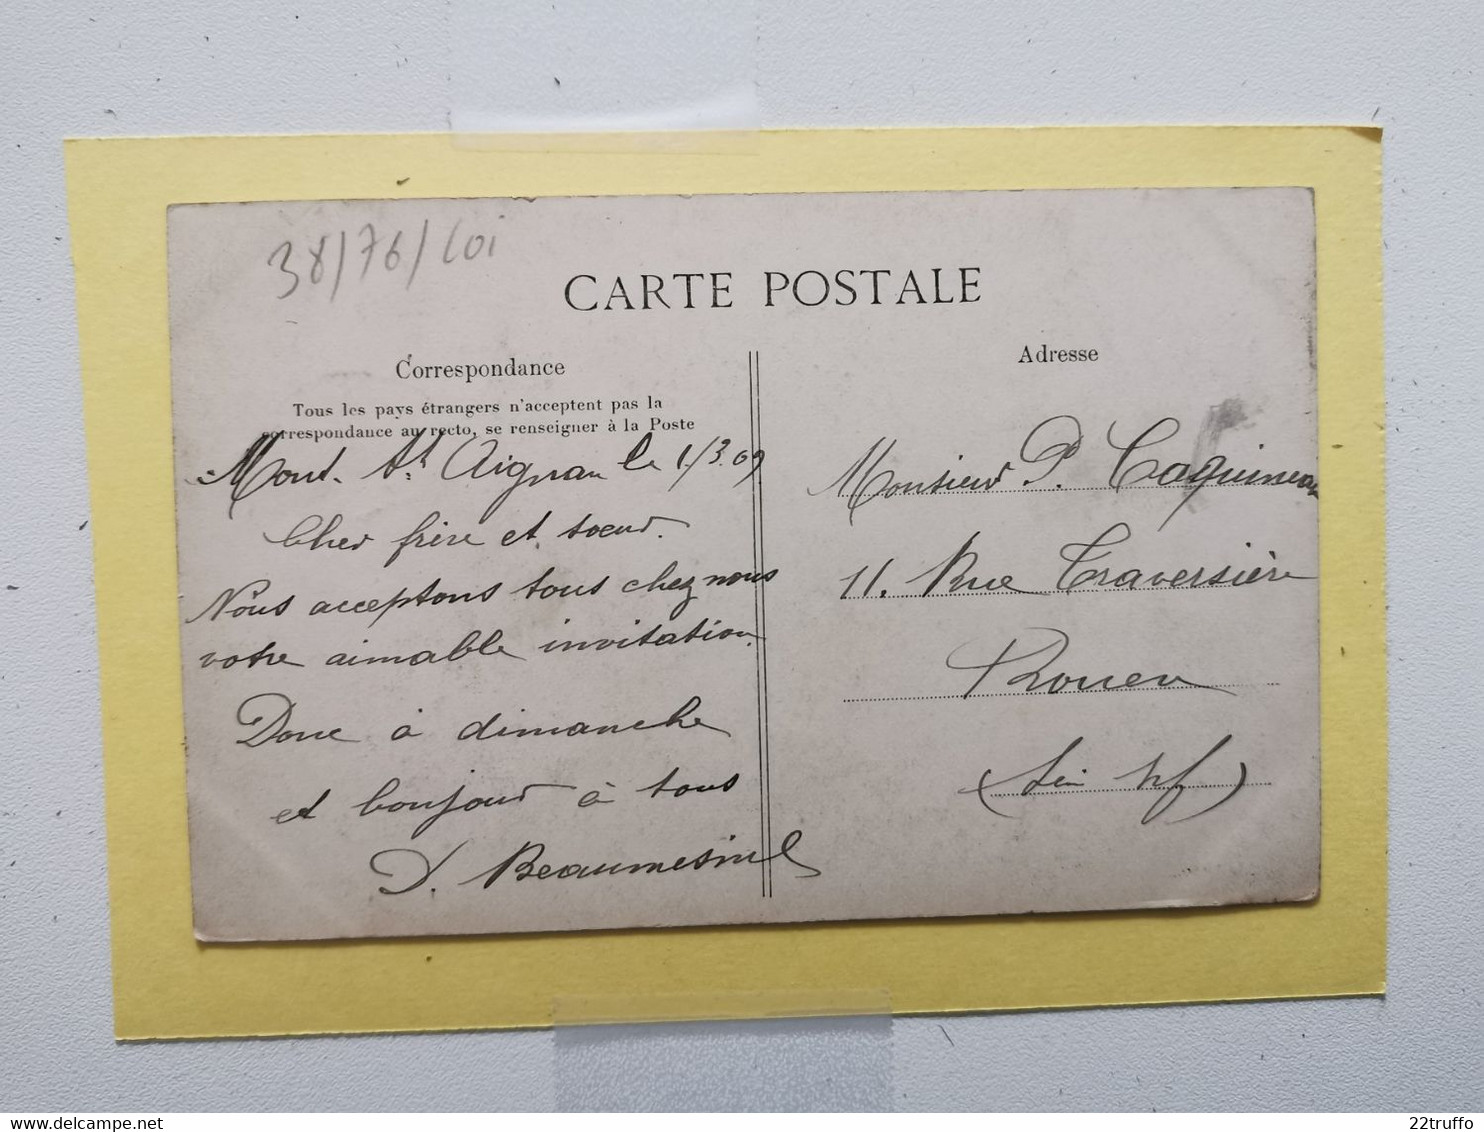 38/76/Loi
CARTE POSTALE
Correspondance
Tous les pays étrangers n'acceptent pas la
correspondance au recto, se renseigner à la Poste
Mont. St Aignan le 1/3.09
Cher frère et sœur.
Nous acceptons tous chez nous
votre aimable invitation.
Donc à dimanche
et bonjour à tous
D. Beaumesnil
Adresse
Monsieur P. Caquineau
11. Rue Traversière
Rouen
(Sein Inf)
www.delcampe.net
22truffo